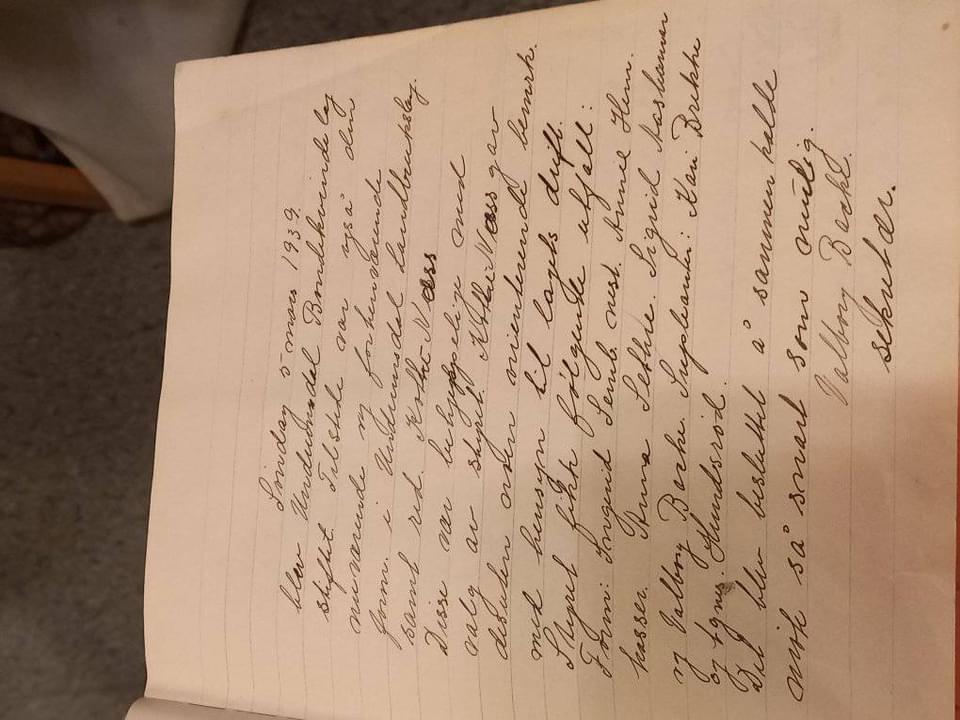 Søndag 5 mars 1939.
blev Undeumsdal Bondekvindelag
stiftet. Tilstede var også den
nuværende og forhenværende
form. i Undeumsdal Landbrukslag.
samt red. Kolbei Næss
Disse var behjelpelige med
valg av styret. Kolbei Næss gav
desuden nogen veiledende bemerk.
med hensyn til lagets drift.
Styret fikk følgende utfall:
Form: Ingerid Semb, nest. Annie Hem.
kasser. Anna Sethre. Sigrid Aashammer
og Valborg Bakke. Supleanter: Kari Brekke
og Agnes Hundsrød.
Det blev besluttet å sammenkalle
møte så snart som mulig.
Valborg Bakke.
sekretær.